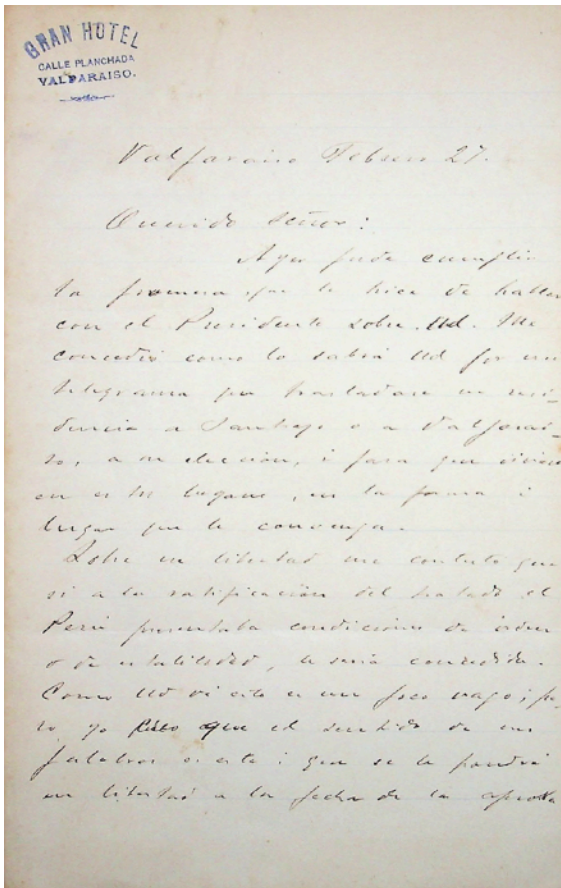 GRAN HOTEL
CALLE PLANCHADA
VALPARAISO.
Valparaiso Febrero 27.
Querido Señor:
Ayer pude cumplir
la promesa que le hice de hablar
con el Presidente sobre Ud. Me
concedió como lo sabrá Ud por un
telegrama que trasladase su resi-
dencia a Santiago o a Valparai-
so, a su eleccion, i para que viviese
en estos lugares, en la forma i
lugar que le convenga.
Sobre su libertad me contestó que
si a la ratificacion del tratado el
Perú presentaba condiciones de órden
o de estabilidad, le seria concedida.
Como Ud vé esto es un poco vago; pe-
ro yo creo que el sentido de sus
palabras es este i que se le pondrá
en libertad a la fecha de la aproba